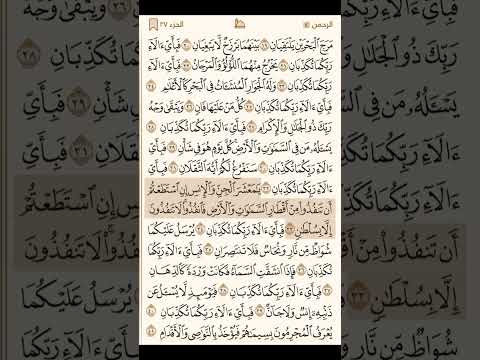 الرحمن
الجزء ٢٧
مَرَجَ ٱلْبَحْرَيْنِ يَلْتَقِيَانِ ١٩ بَيْنَهُمَا بَرْزَخٌ لَّا يَبْغِيَانِ ٢٠ فَبِأَيِّ ءَالَآءِ
رَبِّكُمَا تُكَذِّبَانِ ٢١ يَخْرُجُ مِنْهُمَا ٱللُّؤْلُؤُ وَٱلْمَرْجَانُ ٢٢ فَبِأَيِّ ءَالَآءِ
رَبِّكُمَا تُكَذِّبَانِ ٢٣ وَلَهُ ٱلْجَوَارِ ٱلْمُنشَـَٔاتُ فِي ٱلْبَحْرِ كَٱلْأَعْلَٰمِ ٢٤
فَبِأَيِّ ءَالَآءِ رَبِّكُمَا تُكَذِّبَانِ ٢٥ كُلُّ مَنْ عَلَيْهَا فَانٍ ٢٦ وَيَبْقَىٰ وَجْهُ
رَبِّكَ ذُو ٱلْجَلَٰلِ وَٱلْإِكْرَامِ ٢٧ فَبِأَيِّ ءَالَآءِ رَبِّكُمَا تُكَذِّبَانِ ٢٨
يَسْـَٔلُهُۥ مَن فِي ٱلسَّمَٰوَٰتِ وَٱلْأَرْضِ كُلَّ يَوْمٍ هُوَ فِي شَأْنٍ ٢٩ فَبِأَيِّ
ءَالَآءِ رَبِّكُمَا تُكَذِّبَانِ ٣٠ سَنَفْرُغُ لَكُمْ أَيُّهَ ٱلثَّقَلَانِ ٣١ فَبِأَيِّ
ءَالَآءِ رَبِّكُمَا تُكَذِّبَانِ ٣٢ يَٰمَعْشَرَ ٱلْجِنِّ وَٱلْإِنسِ إِنِ ٱسْتَطَعْتُمْ
أَن تَنفُذُوا۟ مِنْ أَقْطَارِ ٱلسَّمَٰوَٰتِ وَٱلْأَرْضِ فَٱنفُذُوا۟ لَا تَنفُذُونَ
إِلَّا بِسُلْطَٰنٍ ٣٣ فَبِأَيِّ ءَالَآءِ رَبِّكُمَا تُكَذِّبَانِ ٣٤ يُرْسَلُ عَلَيْكُمَا
شُوَاظٌ مِّن نَّارٍ وَنُحَاسٌ فَلَا تَنتَصِرَانِ ٣٥ فَبِأَيِّ ءَالَآءِ رَبِّكُمَا
تُكَذِّبَانِ ٣٦ فَإِذَا ٱنشَقَّتِ ٱلسَّمَآءُ فَكَانَتْ وَرْدَةً كَٱلدِّهَانِ
٣٧ فَبِأَيِّ ءَالَآءِ رَبِّكُمَا تُكَذِّبَانِ ٣٨ فَيَوْمَئِذٍ لَّا يُسْـَٔلُ عَن
ذَنۢبِهِۦٓ إِنسٌ وَلَا جَآنٌّ ٣٩ فَبِأَيِّ ءَالَآءِ رَبِّكُمَا تُكَذِّبَانِ ٤٠
يُعْرَفُ ٱلْمُجْرِمُونَ بِسِيمَٰهُمْ فَيُؤْخَذُ بِٱلنَّوَٰصِي وَٱلْأَقْدَامِ ٤١